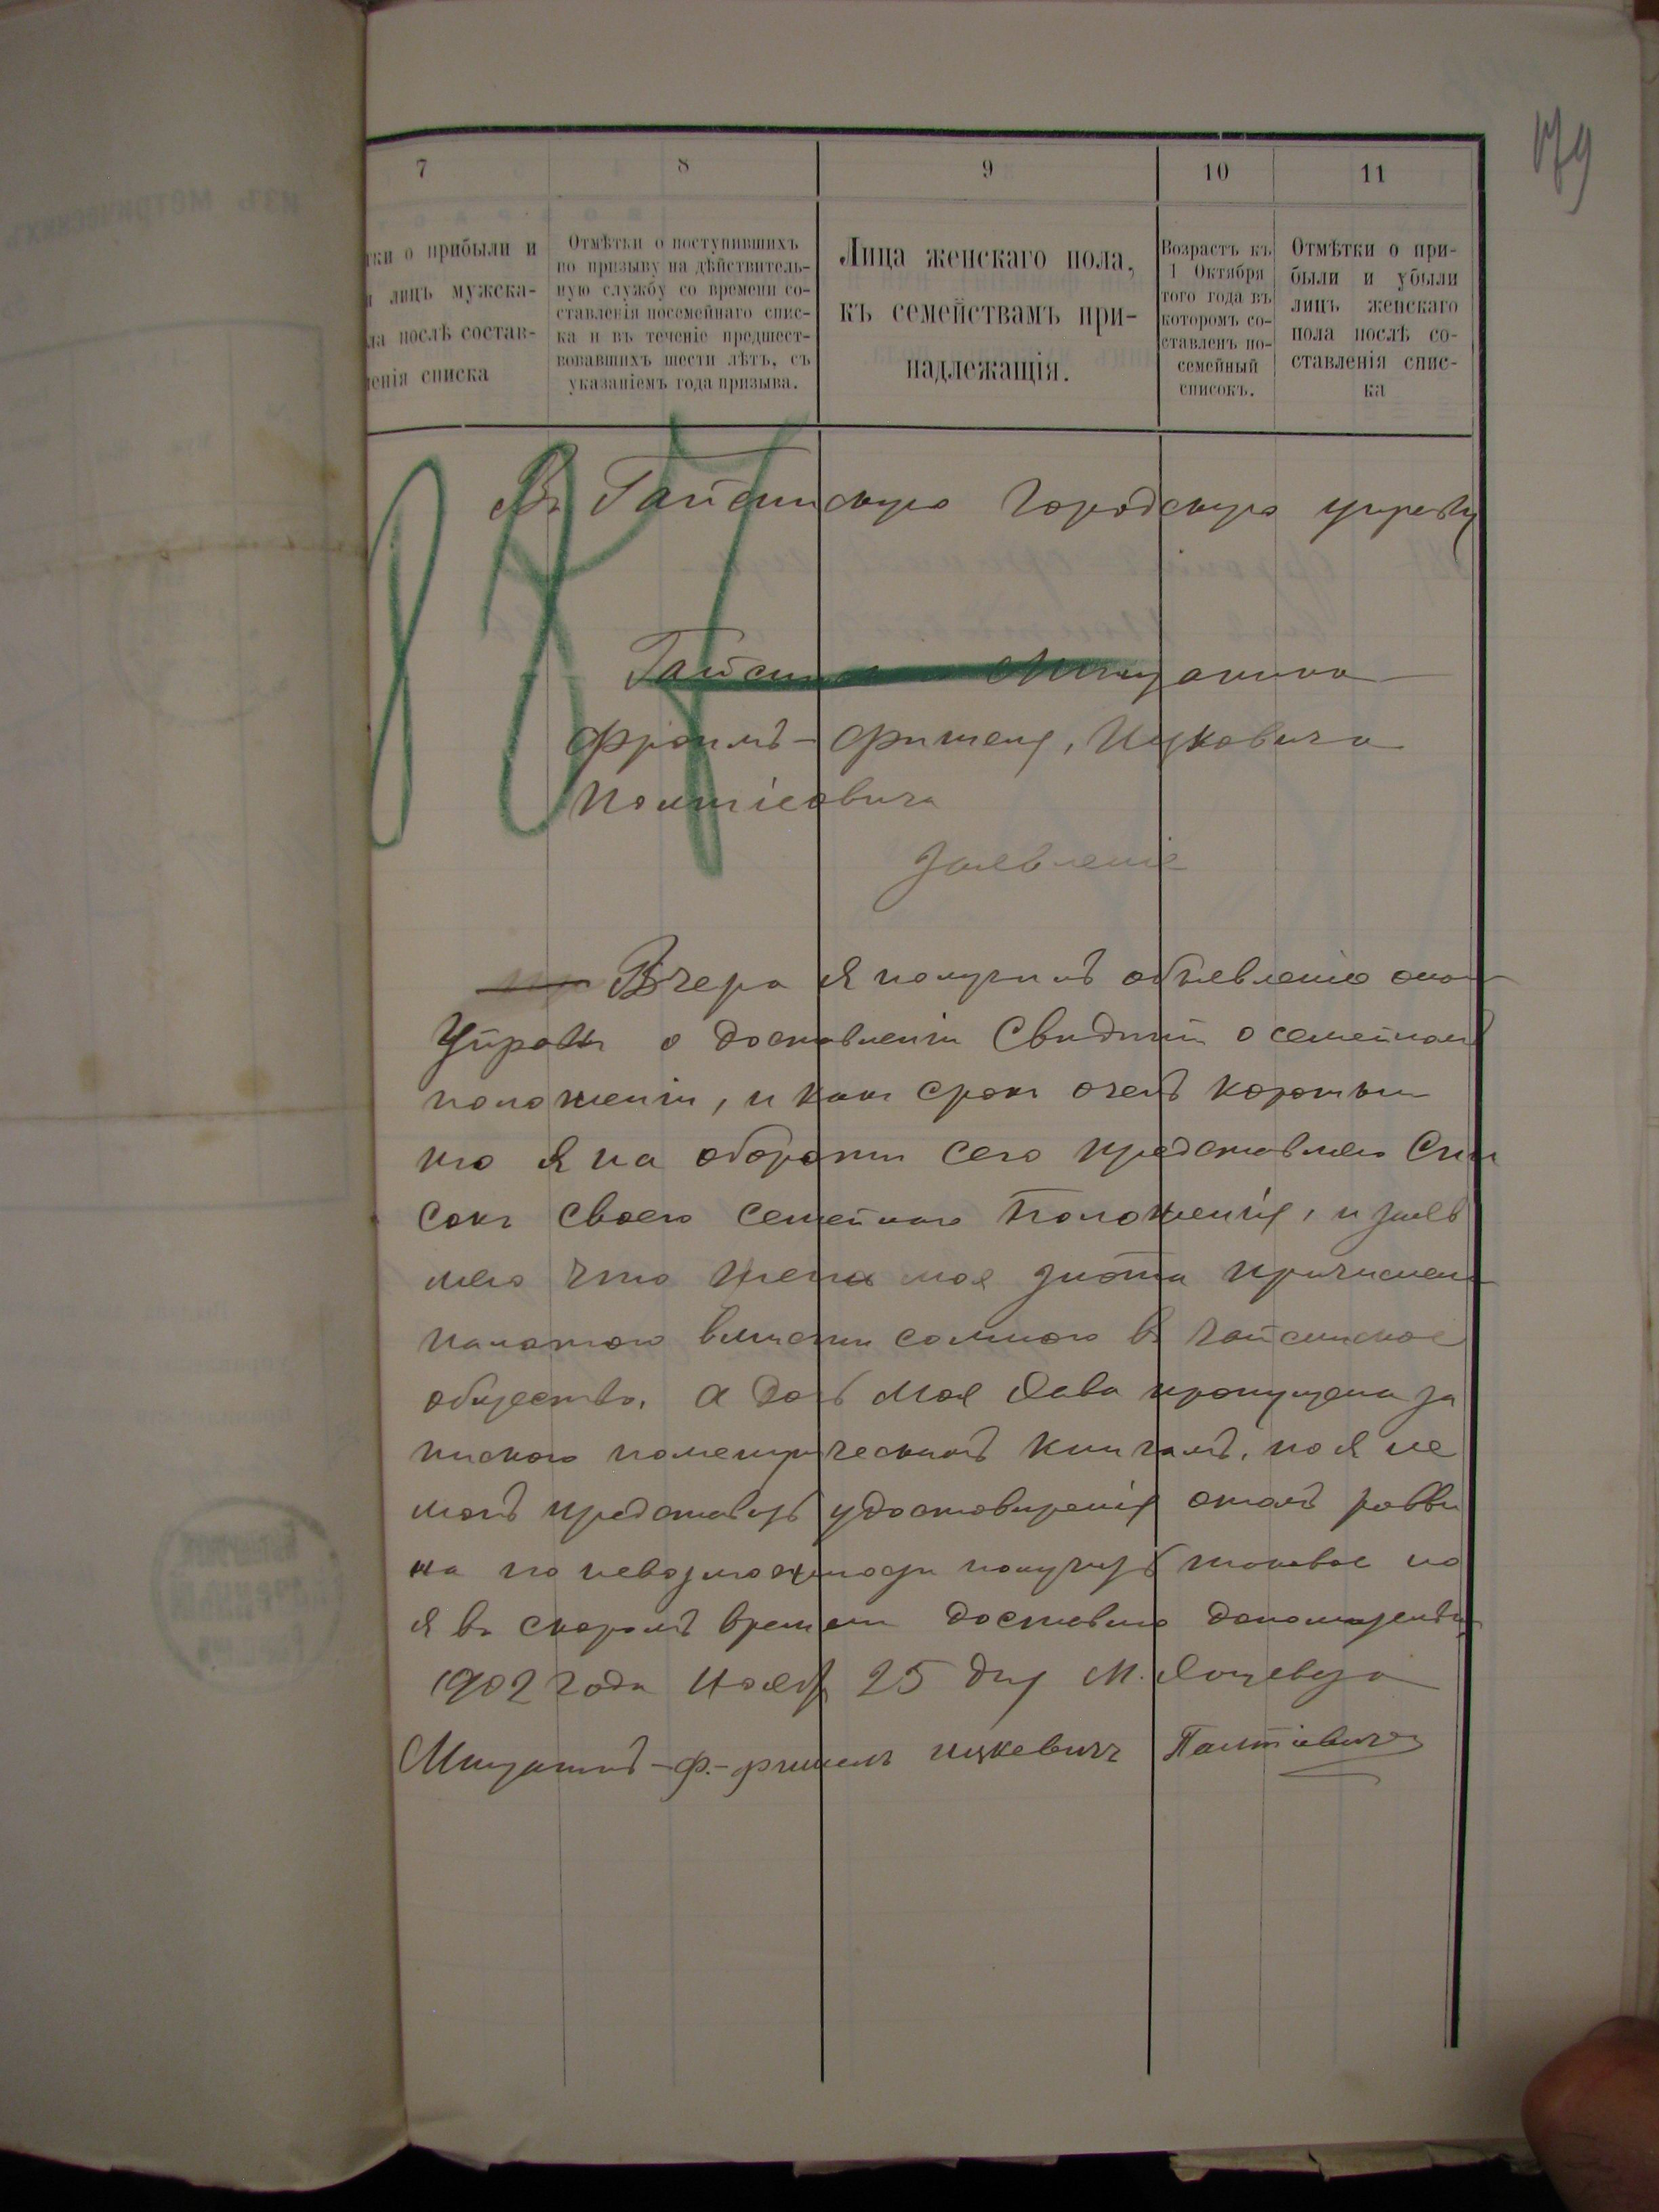 179
7 8 9 10 11
тки о прибыли и
и лицъ мужска-
ла послѣ состав-
ленія списка
Отмѣтки о поступившихъ
по призыву на дѣйствитель-
ную службу со времени со-
ставленія посемейнаго спис-
ка и въ теченіе предшест-
вовавшихъ шести лѣтъ, съ
указаніемъ года призыва.
Лица женскаго пола,
къ семействамъ при-
надлежащія.
Возрастъ къ
1 Октября
того года въ
которомъ со-
ставленъ по-
семейный
списокъ.
Отмѣтки о при-
были и убыли
лицъ женскаго
пола послѣ со-
ставленія спис-
ка
Въ Гайсинскую Городскую управу
Мищанина
Фроимъ - Фишеля, Ицковича
Заявленіе
Вчера я получилъ объявленіе
Управы о доставленіи о семейномъ
положеніи, и какъ срокъ очень
то я на обороти сего представляю Спи
сокъ своего семейнаго Положенія, и заяв
ляю что жена моя Злота причислена
палатою вмисти сомною въ гайсинское
общество, а дочь моя пропущена за
пискою пометрическимъ книгамъ, но я не
могъ представить удостовиренія отъ равви
на по невозможности получить таковое но
я въ скоромъ времени доставлю
1902 года 25 дня М.
Мищанинъ - Ф. - фишель ицкевичъ